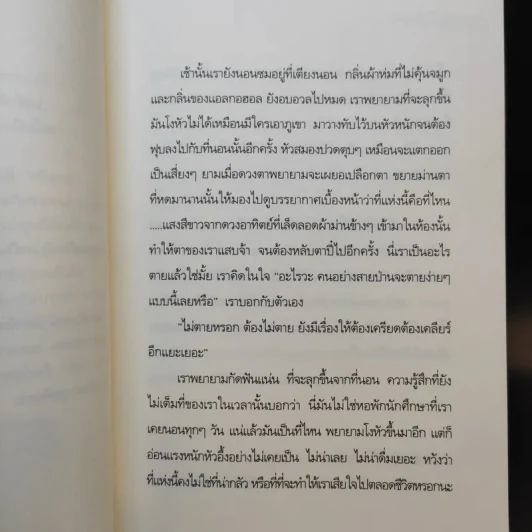 เช้านั้นเรายังนอนซมอยู่ที่เตียงนอน กลิ่นผ้าห่มที่ไม่คุ้นจมูก
และกลิ่นของแอลกอฮอล ยังอบอวลไปหมด เราพยายามที่จะลุกขึ้น
มันโงหัวไม่ได้เหมือนมีใครเอาภูเขา มาวางทับไว้บนหัวหนักจนต้อง
ฟุบลงไปกับที่นอนนั้นอีกครั้ง หัวสมองปวดตุบๆ เหมือนจะแตกออก
เป็นเสี่ยงๆ ยามเมื่อดวงตาพยายามจะเผยอเปลือกตา ขยายม่านตา
ที่หดมานานนั้นให้มองไปดูบรรยากาศเบื้องหน้าว่าที่แห่งนี้คือที่ไหน
.....แสงสีขาวจากดวงอาทิตย์ที่เล็ดลอดผ้าม่านข้างๆ เข้ามาในห้องนั้น
ทำให้ตาของเราแสบจ้า จนต้องหลับตาปี๋ไปอีกครั้ง นี่เราเป็นอะไร
ตายแล้วใช่มั้ย เราคิดในใจ "อะไรวะ คนอย่างสายป่านจะตายง่ายๆ
แบบนี้เลยหรือ" เราบอกกับตัวเอง
"ไม่ตายหรอก ต้องไม่ตาย ยังมีเรื่องให้ต้องเครียดต้องเคลียร์
อีกแยะเยอะ"
เราพยายามกัดฟันแน่น ที่จะลุกขึ้นจากที่นอน ความรู้สึกที่ยัง
ไม่เต็มที่ของเราในเวลานั้นบอกว่า นี่มันไม่ใช่หอพักนักศึกษาที่เรา
เคยนอนทุกๆ วัน แน่แล้วมันเป็นที่ไหน พยายามโงหัวขึ้นมาอีก แต่ก็
อ่อนแรงหนักหัวอึ้งอย่างไม่เคยเป็น ไม่น่าเลย ไม่น่าดื่มเยอะ หวังว่า
ที่แห่งนี้คงไม่ใช่ที่น่ากลัว หรือที่ที่จะทำให้เราเสียใจไปตลอดชีวิตหรอกนะ